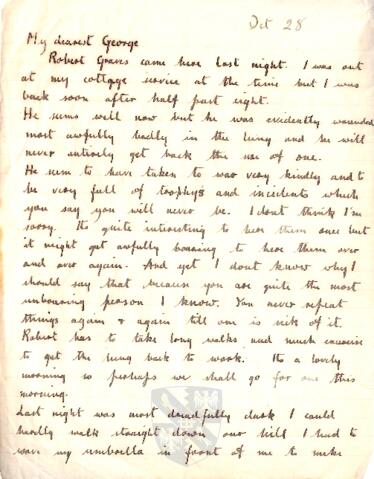 Oct 28
My dearest George
Robert Graves came here last night. I was out
at my cottage service at the time but I was
back soon after half past eight.
He seems well now but he was evidently wounded
most awfully badly in the lung and he will
never entirely get back the use of one.
He seem to have taken to war very kindly and to
be very full of trophys and incidents which
you say you will never be. I dont think I'm
sorry. Its quite interesting to hear them once but
it might get awfully boaring to hear them over
and over again. And yet I dont know why I
should say that because you are quite the most
unboaring person I know. You never repeat
things again & again till one is sick of it.
Robert has to take long walks and much exercise
to get the lung back to work. Its a lovely
morning so perhaps we shall go for one this
morning.
Last night was most dreadfully dark I could
hardly walk straight down our hill I had to
wave my umbrella in front of me to make